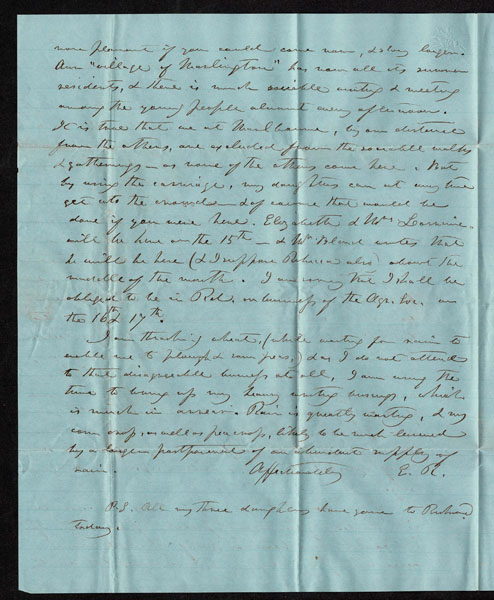 more pleasant if you could come now, & stay longer.
Our "village of Marlington" has now all its summer
residents, & there is much sociable visiting & meeting
among the young people almost every afternoon.
It is true that we at Marlbourne, by our distance
from the others, are excluded from the sociable walks
& gatherings — as none of the others come here. But
by using the carriage, my daughters can at any time
get into the crowd — & of course that would be
done if you were here. Elizabeth & Mrs
will be here on the 15th — & Wm Bland writes that
he will be here (& I suppose Rebecca also) about the
middle of the month. I am sorry that I shall be
obliged to be in Rd. on business of the Agr. Soc. on
the 16th & 17th.
I am thrashing wheat, (while waiting for rain to
enable me to plough & sow peas,) & as I do not attend
to that disagreeable business at all, I am using the
time to bring up my heavy writing business, which
is much in arrear. Rain is greatly wanting, & my
corn crop, as well as pea crop, likely to be much lessened
by a longer postponement of an abundant supply of
rain.
Affectionately E. R.
P.S. All my three daughters have gone to Richmond
today.